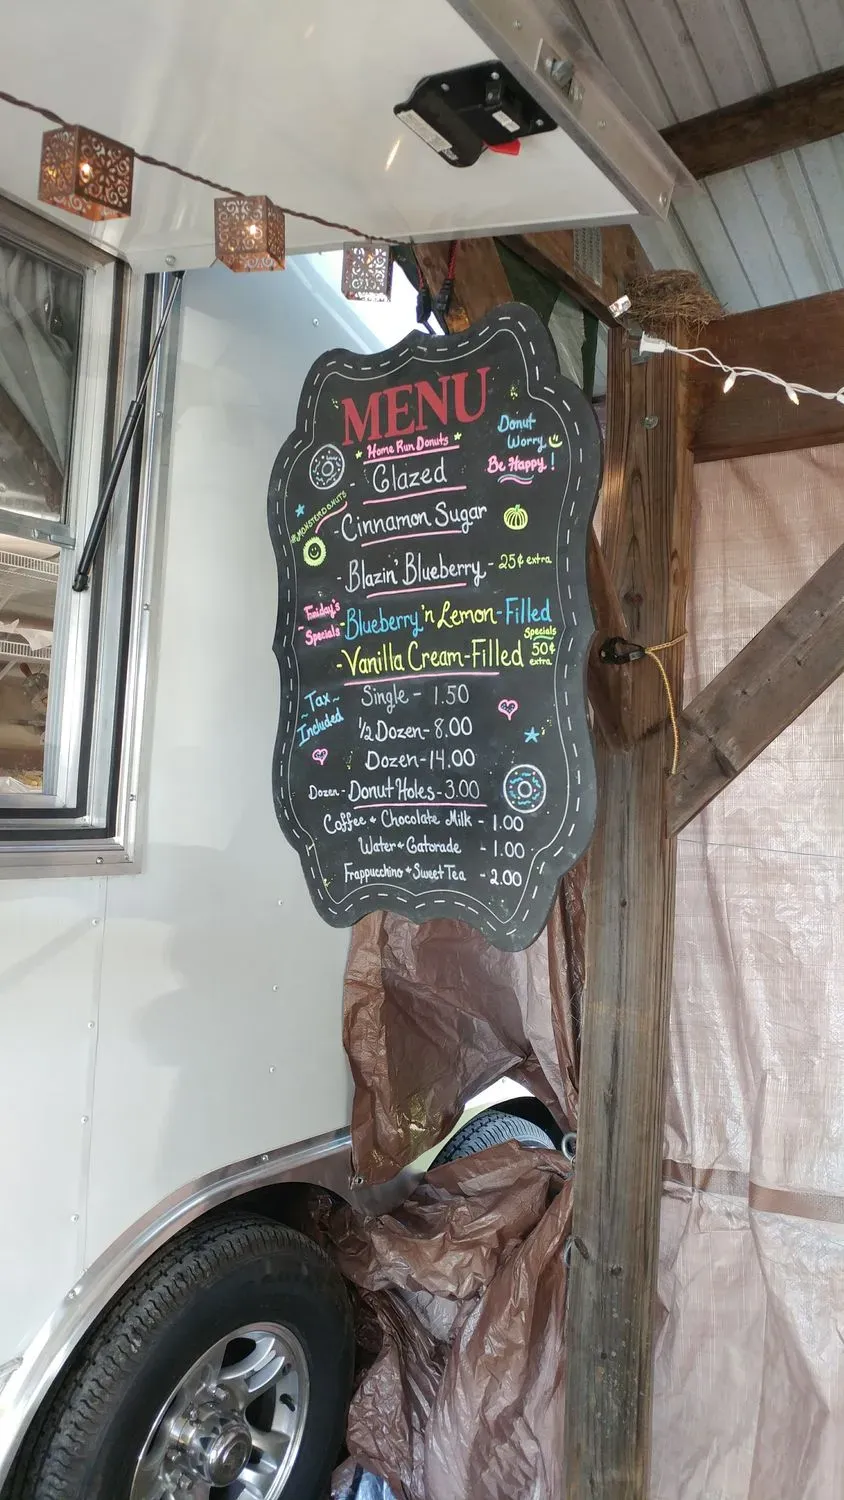 MENU
* Home Run Donuts *
Donut
Worry
Be Happy!
- Glazed
#MONSTERDONUTS
- Cinnamon Sugar
- Blazin' Blueberry - 25¢ extra
Friday's
Specials
- Blueberry 'n Lemon-Filled
- Vanilla Cream-Filled
Specials
50¢
extra
~ Tax ~
Included
Single - 1.50
1/2 Dozen - 8.00
Dozen - 14.00
Dozen - Donut Holes - 3.00
Coffee + Chocolate Milk - 1.00
Water + Gatorade - 1.00
Frappuccino + Sweet Tea - 2.00